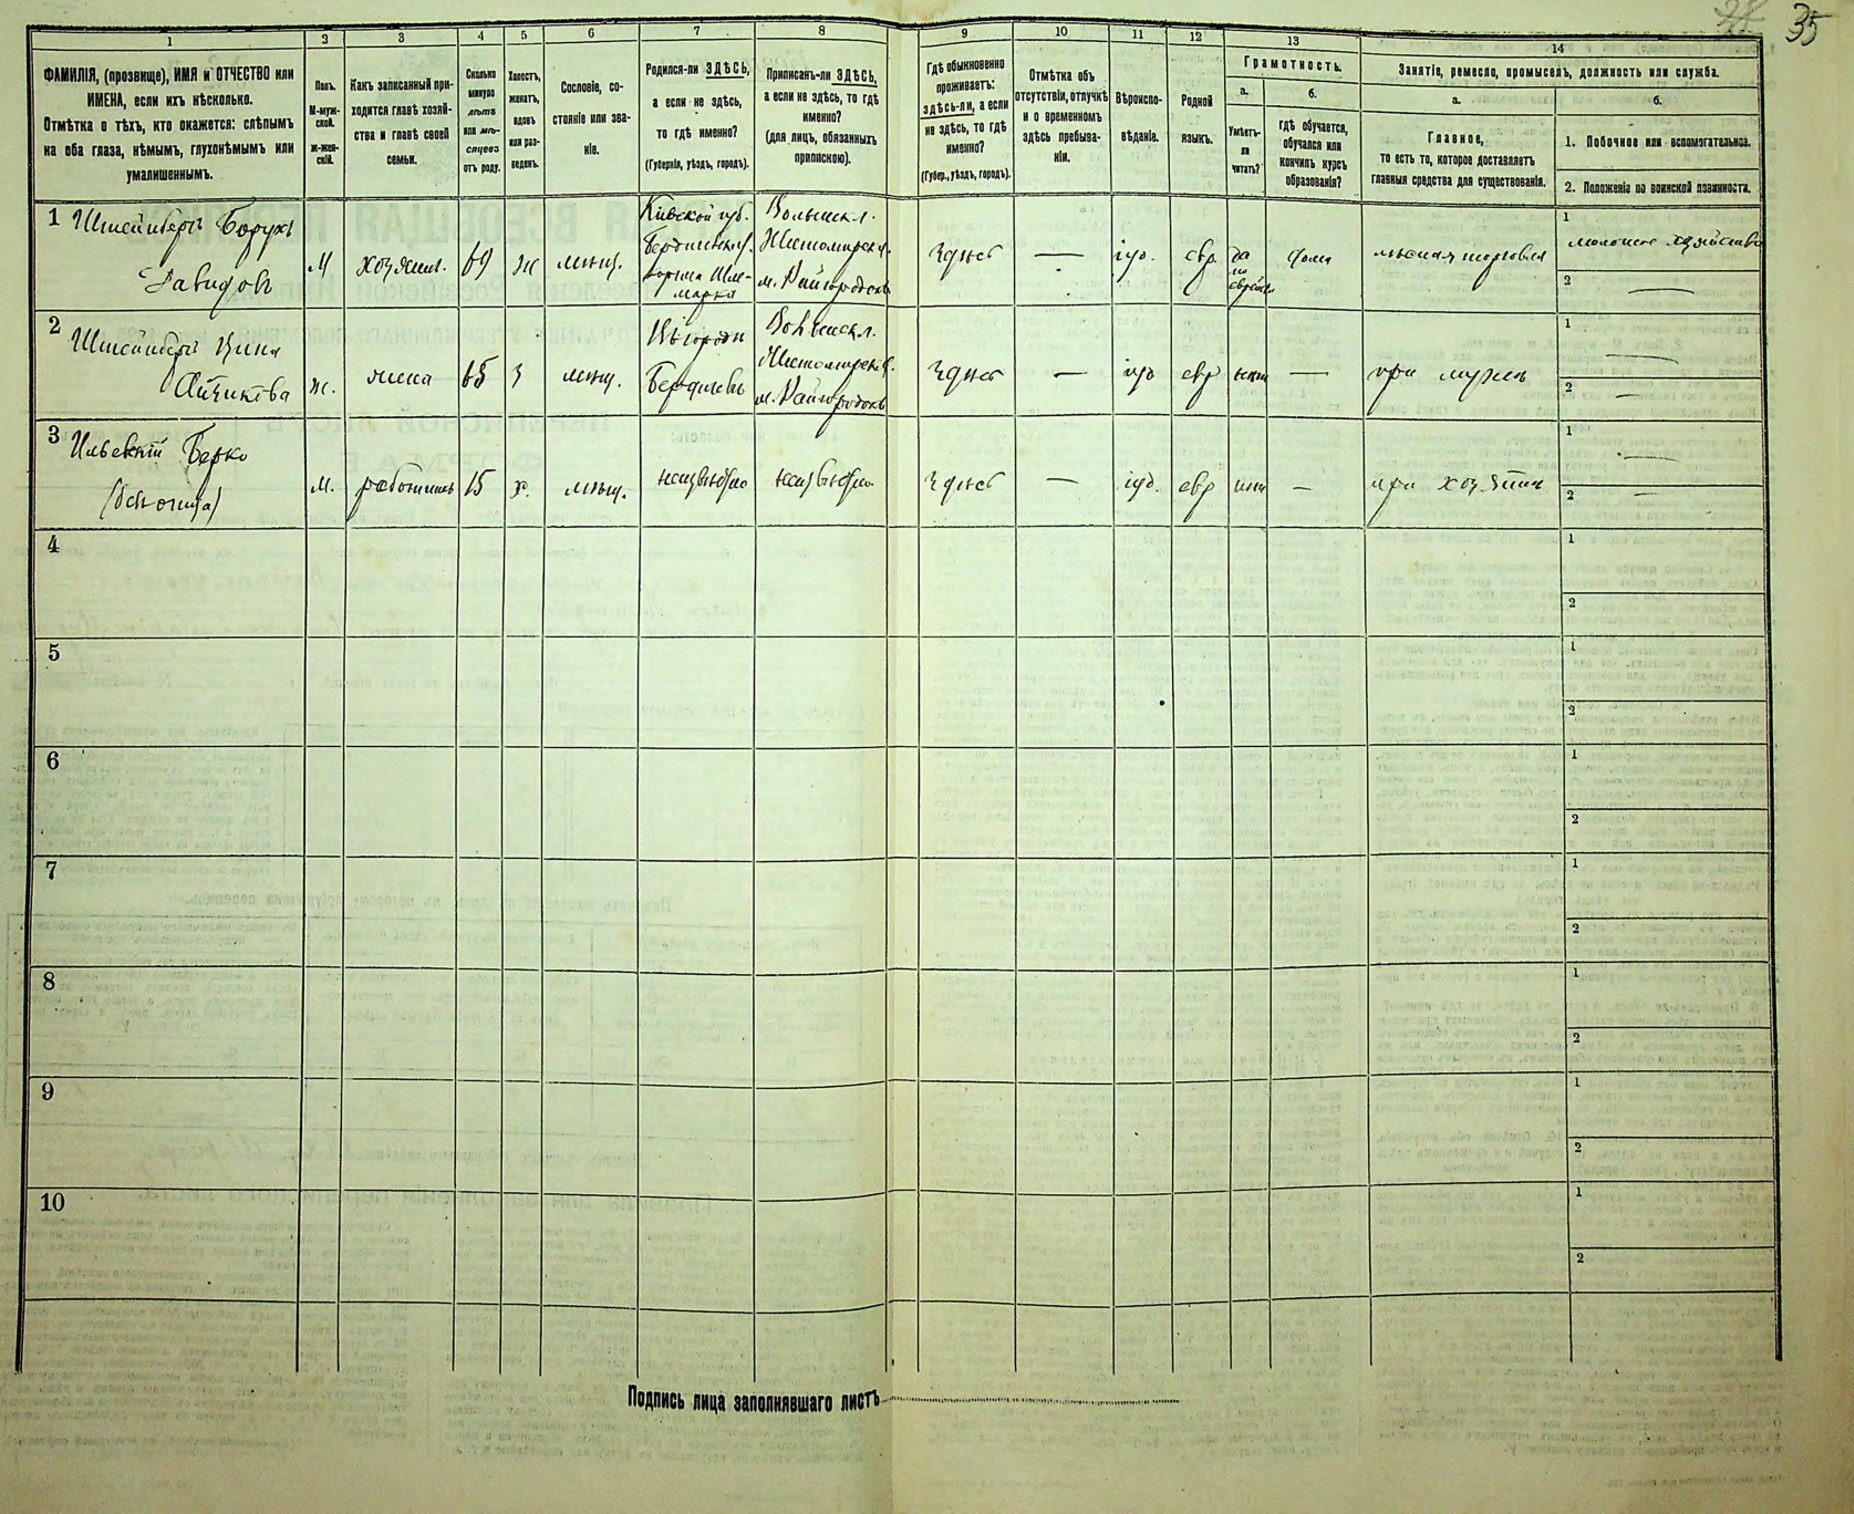 35
1
2
3
4
5
6
7
8
9
10
11
12
13
14
ФАМИЛІЯ, (прозвище), ИМЯ и ОТЧЕСТВО или
ИМЕНА, если ихъ нѣсколько.
Отмѣтка о тѣхъ, кто окажется: слѣпымъ
на оба глаза, нѣмымъ, глухонѣмымъ или
умалишеннымъ.
Полъ.
М-муж-
ской.
ж-жен-
скій.
Какъ записанный при-
ходится главѣ хозяй-
ства и главѣ своей
семьи.
Сколько
минуло
лѣтъ
или мѣ-
сяцевъ
отъ роду.
Холостъ,
женатъ,
вдовъ
или раз-
веденъ.
Сословіе, со-
стояніе или зва-
ніе.
Родился-ли ЗДѢСЬ,
а если не здѣсь,
то гдѣ именно?
(Губернія, уѣздъ, городъ).
Приписанъ-ли ЗДѢСЬ,
а если не здѣсь, то гдѣ
именно?
(для лицъ, обязанныхъ
припискою).
Гдѣ обыкновенно
проживаетъ:
здѣсь-ли, а если
не здѣсь, то гдѣ
именно?
(Губер., уѣздъ, городъ).
Отмѣтка объ
отсутствіи, отлучкѣ
и о временномъ
здѣсь пребыва-
ніи.
Вѣроиспо-
вѣданіе.
Родной
языкъ.
Грамотность.
а.
Умѣетъ-
ли
читать?
б.
гдѣ обучается,
обучался или
кончилъ курсъ
образованія?
Занятіе, ремесло, промыселъ, должность или служба.
а.
Главное,
то есть то, которое доставляетъ
главныя средства для существованія.
б.
1. Побочное или вспомогательное.
2. Положеніе по воинской повинности.
1 Борухъ
Давидовъ
М
хозяин.
69
ж
мѣщ.
Кіевской губ.
Волынск. г.
Житомирск. у.
м. Райгородокъ
Здѣсь
—
іуд.
евр
да
по
еврейск.
дома
лѣсная торговля
1
молочное хозяйство
2 —
2 Цина
ж.
жена
65
з
мѣщ.
Бердичевъ
Волынск. г.
Житомирск. у.
м. Райгородокъ
Здѣсь
—
іуд
евр
—
при мужѣ
1 —
2 —
3 Берко
М.
работникъ
15
х.
мѣщ.
неизвѣстно
неизвѣстно
Здѣсь
—
іуд.
евр
—
при хозяинѣ
1 —
2 —
4
1
2
5
1
2
6
1
2
7
1
2
8
1
2
9
1
2
10
1
2
Подпись лица заполнявшаго листъ